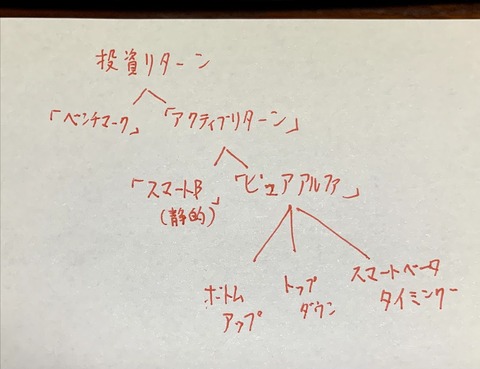 投資リターン
「ベンチマーク」 「アクティブリターン」
「スマートβ」 「ピュアアルファ」
(静的)
ボトム トップ スマートベータ
アップ ダウン タイミング